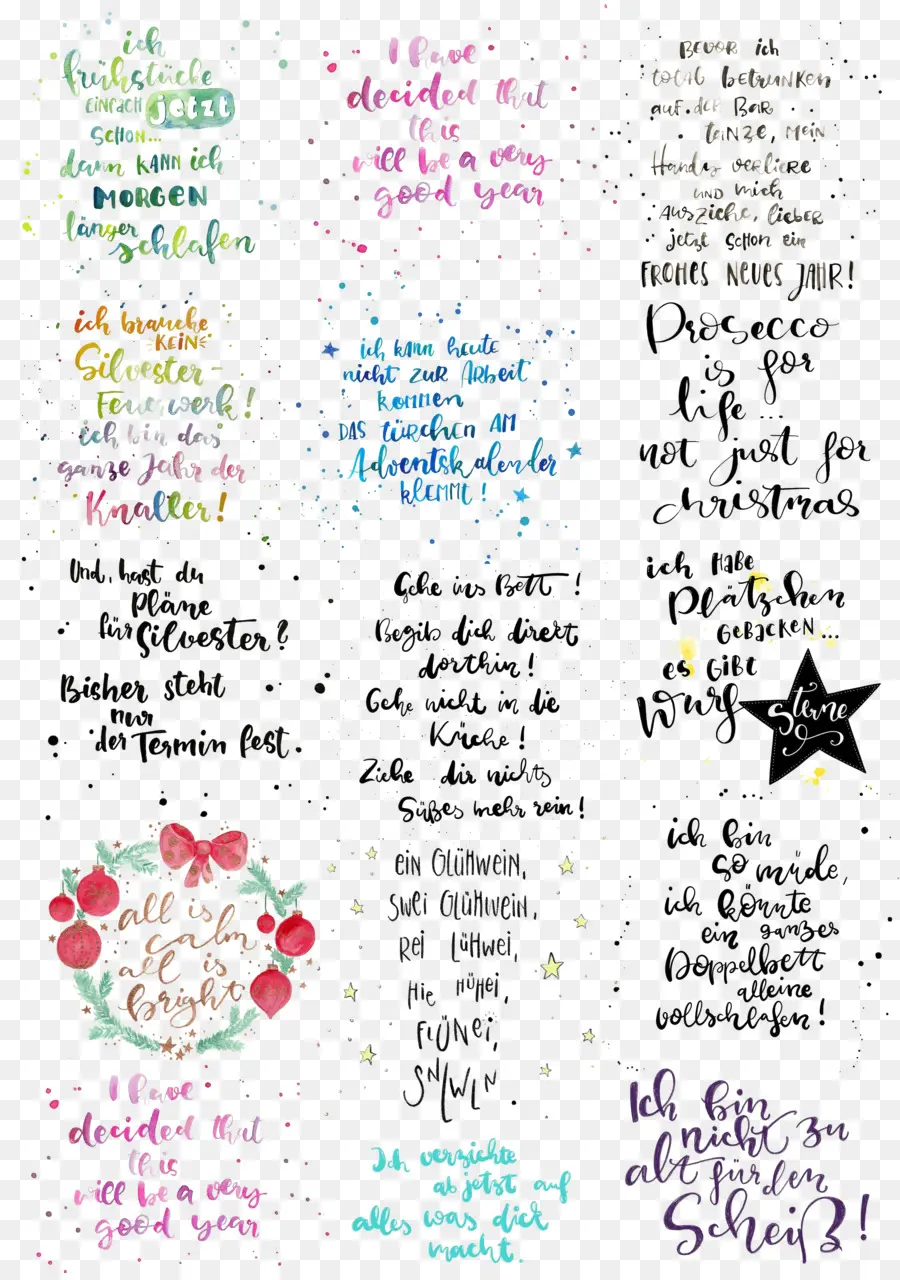 ich
frühstücke
EINFACH jetzt
SCHON...
dann KANN ich
MORGEN
länger
schlafen
I have
decided that
this
will be a very
good year
BEVOR ich
total betrunken
auf der BAR
tanze, mein
Handy verliere
und mich
ausziehe, lieber
jetzt schon ein
FROHES NEUES JAHR!
ich brauche
KEIN
Silvester-
Feuerwerk!
ich bin das
ganze Jahr der
Knaller!
ich kann heute
nicht zur Arbeit
kommen
DAS TÜRCHEN AM
Adventskalender
klemmt!
Prosecco
is for
life...
not just for
christmas
Und, hast du
Pläne
für Silvester?
Bisher steht
nur
der Termin fest.
Gehe ins Bett!
Begib dich direkt
dorthin!
Gehe nicht in die
Küche!
Ziehe dir nichts
Süßes mehr rein!
ich HABE
Plätzchen
GEBACKEN...
es GIBT
Wurf
Sterne
all is
calm
all is
bright
ein Glühwein,
swei Glühwein,
Rei Lühwei,
Hie Hühei,
FlÜNei,
SNLWLN.
ich bin
so müde,
ich könnte
ein ganzes
Doppelbett
alleine
vollschlafen!
I have
decided that
this
will be a very
good year
Ich verzichte
ab jetzt auf
alles was dick
macht.
Ich bin
nicht zu
alt für den
Scheiß!